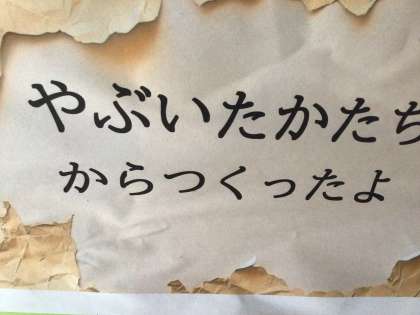 やぶいたかたち
からつくったよ